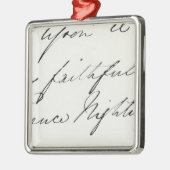 upon
faithful
ence Nighti